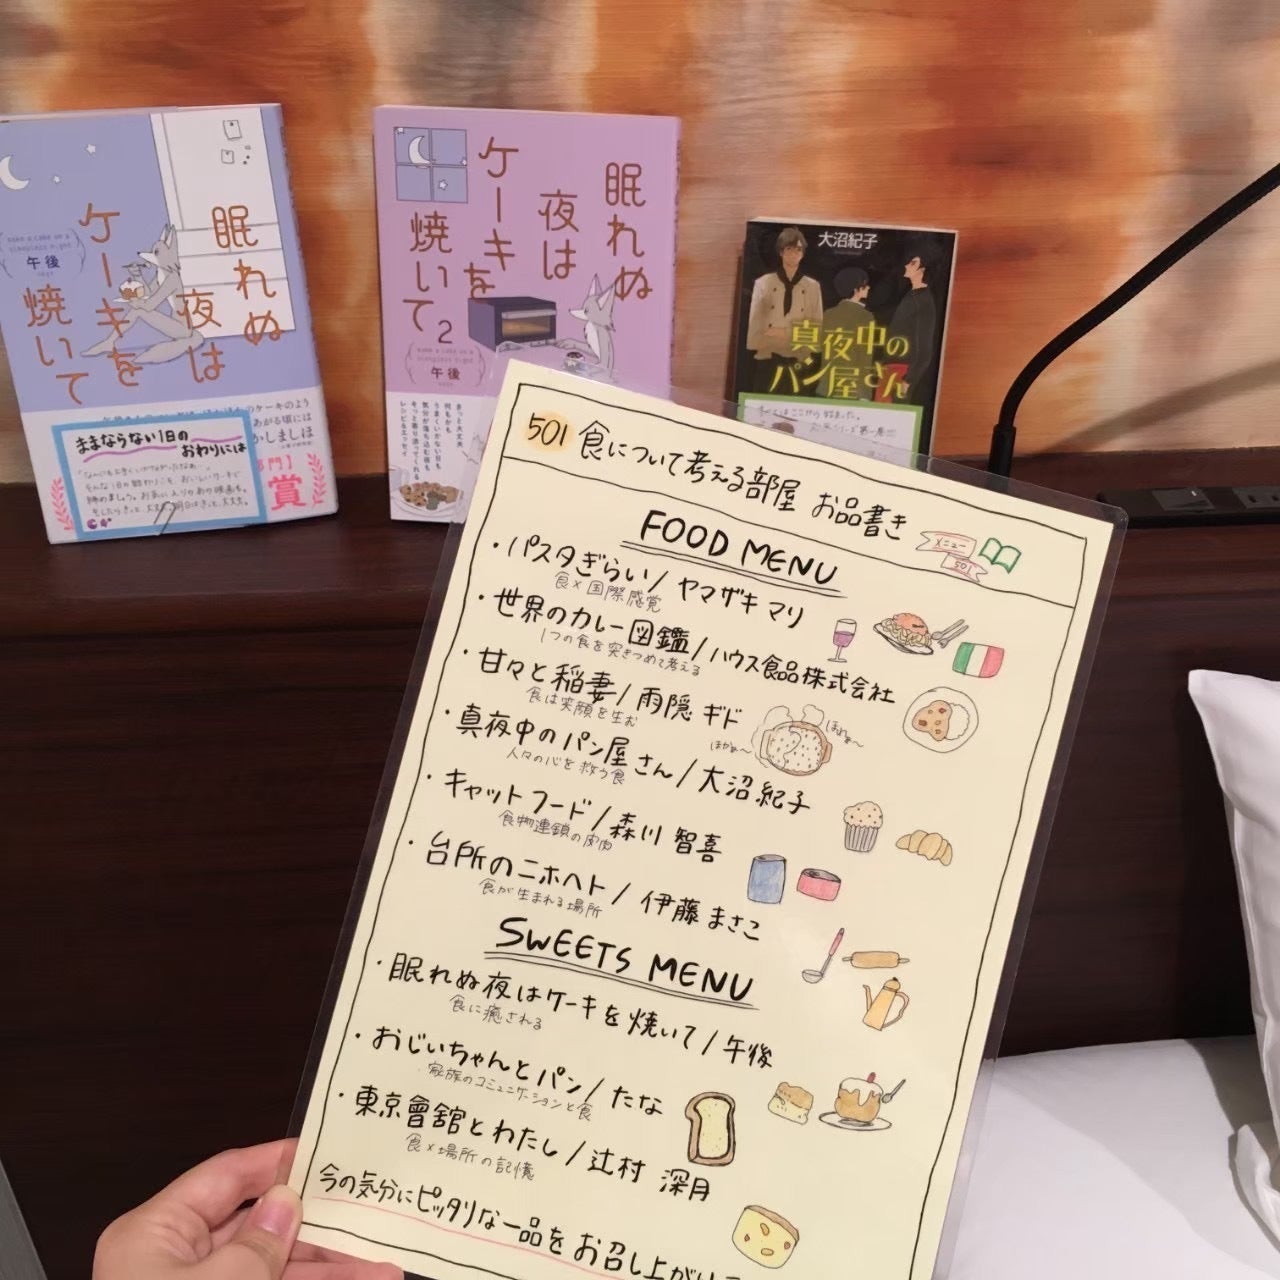 眠れぬ
夜は
ケーキを
焼いて
午後
ままならない1日の
おわりには
賞
眠れぬ
夜は
ケーキを
焼いて
2
午後
きっと大丈夫
何もかも
うまくいかない日も
気分が落ち込む夜も
そっと寄り添ってくれる
レシピ&エッセイ
大沼紀子
真夜中の
パン屋さん
501 食について考える部屋 お品書き
メニュー
501
FOOD MENU
・パスタぎらい/ヤマザキマリ
食×国際感覚
・世界のカレー図鑑/ハウス食品株式会社
1つの食を突きつめて考える
・甘々と稲妻/雨隠ギド
食は笑顔を生む
・真夜中のパン屋さん/大沼紀子
人々の心を救う食
・キャットフード/森川智喜
食物連鎖の皮肉
・台所のニホヘト/伊藤まさこ
食が生まれる場所
SWEETS MENU
・眠れぬ夜はケーキを焼いて/午後
食に癒される
・おじいちゃんとパン/たな
家族のコミュニケーションと食
・東京會舘とわたし/辻村 深月
食×場所の記憶
今の気分にピッタリな一品をお召し上がり